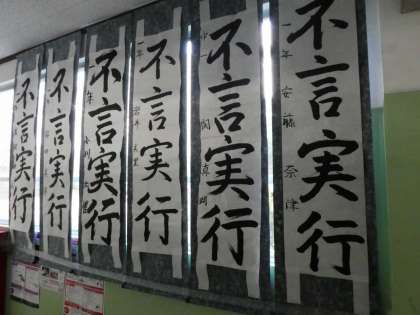 不言実行
一年 安藤奈津
不言実行
不言実行
不言実行
不言実行
不言実行